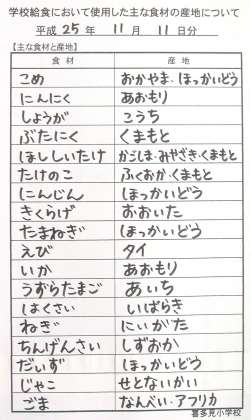 学校給食において使用した主な食材の産地について
平成 25 年 11 月 11 日分
【主な食材と産地】
食材 産地
こめ おかやま・ほっかいどう
にんにく あおもり
しょうが こうち
ぶたにく くまもと
ほししいたけ かごしま・みやざき・くまもと
たけのこ ふくおか・くまもと
にんじん ほっかいどう
きくらげ おおいた
たまねぎ ほっかいどう
えび タイ
いか あおもり
うずらたまご あいち
はくさい いばらき
ねぎ にいがた
ちんげんさい しずおか
だいず ほっかいどう
じゃこ せとないかい
ごま なんべい・アフリカ
喜多見小学校